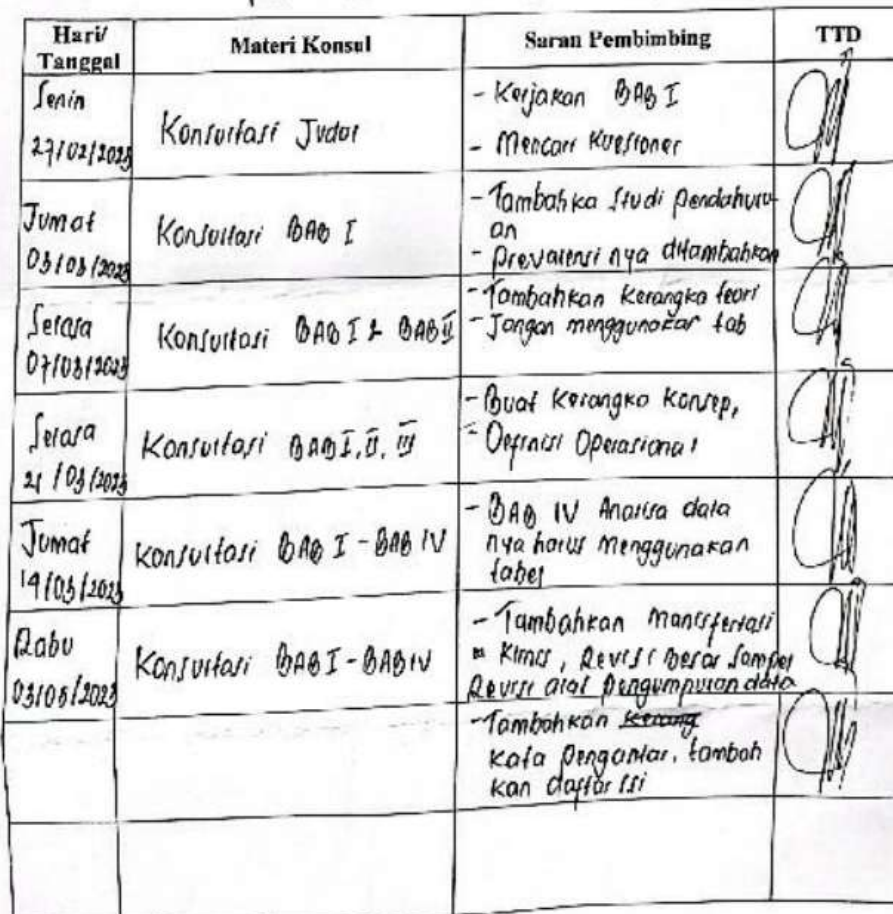 Hari/ Tanggal
Materi Konsul
Saran Pembimbing
TTD
Senin
27/02/2023
Konsultasi Judul
- Kerjakan BAB I
- Mencari Kuesioner
Jumat
03/03/2023
Konsultasi BAB I
- Tambahka Studi Pendahulu-
an
- Prevalensi nya ditambahkan
Selasa
07/03/2023
Konsultasi BAB I & BAB II
- Tambahkan Kerangka teori
- Jangan menggunakan tab
Selasa
21/03/2023
Konsultasi BAB I, II, III
- Buat Kerangka Konsep,
- Definisi Operasional
Jumat
Konsultasi BAB I - BAB IV
- BAB IV Analisa data
nya harus menggunakan
tabel
Rabu
03/05/2023
Konsultasi BAB I - BAB IV
- Tambahkan Manisfestasi
Klinis, Revisi Besar Sampel
Revisi alat Pengumpulan data
- Tambahkan
Kata Pengantar, tambah
kan daftar isi